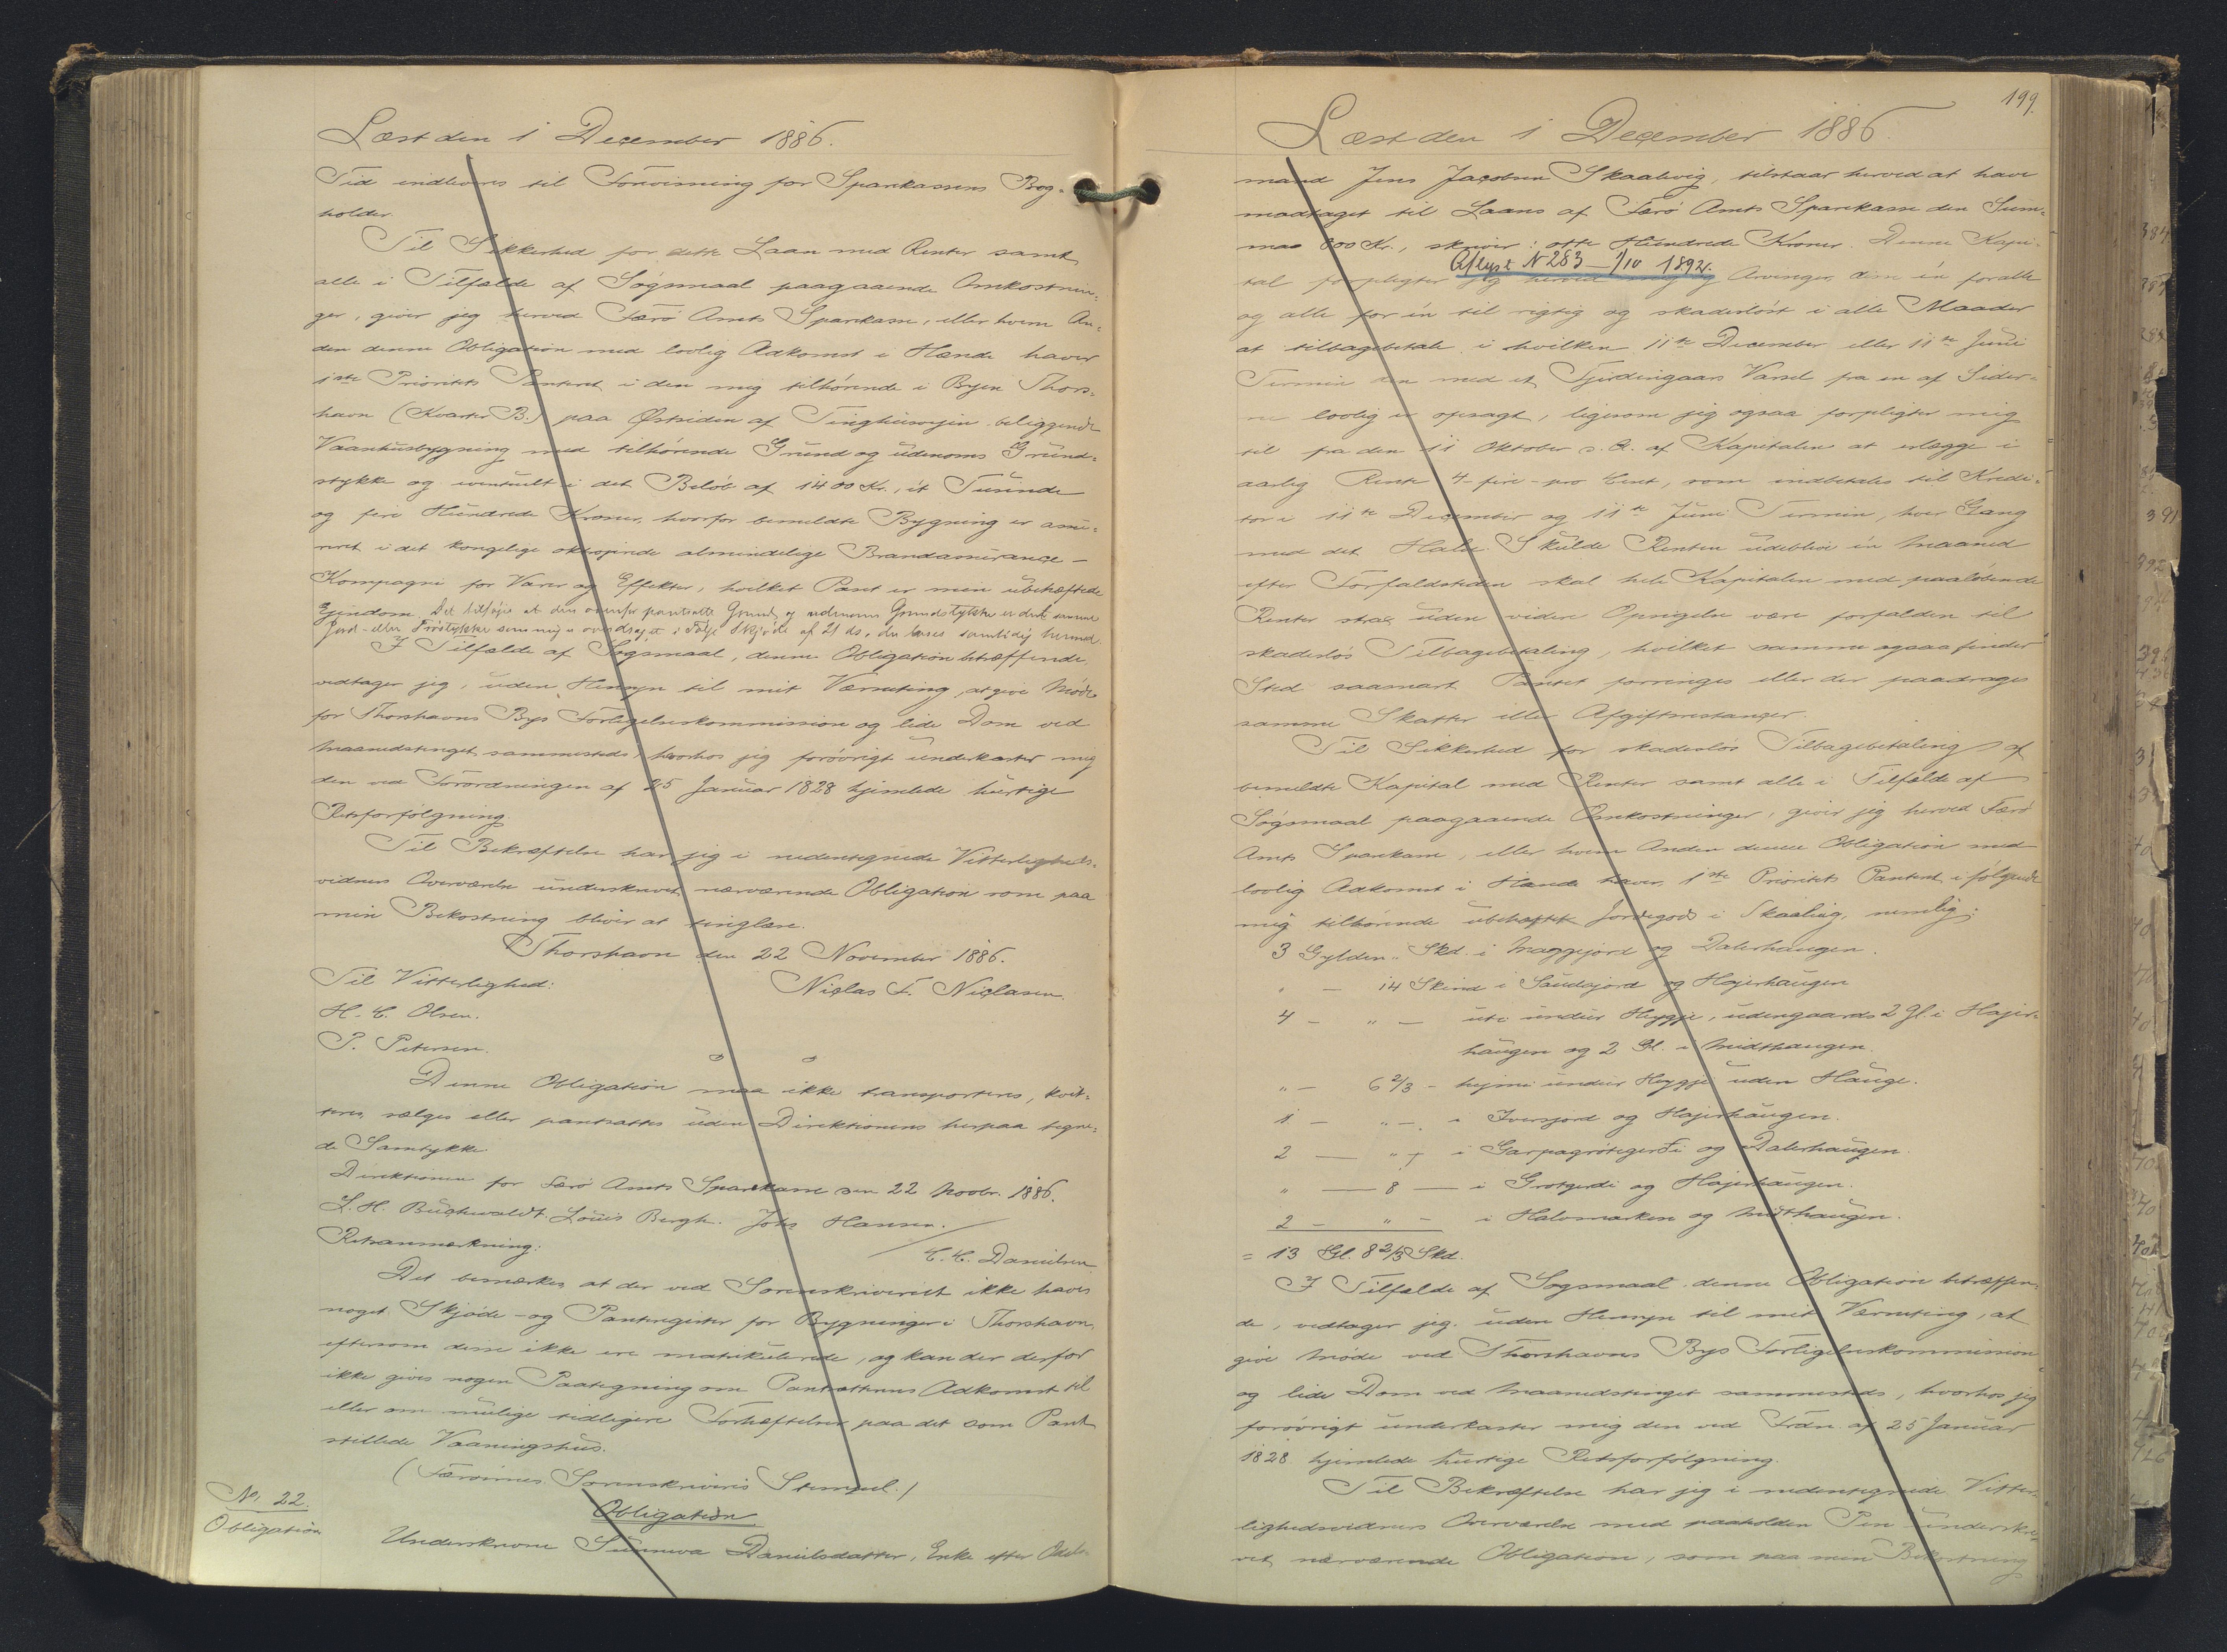 Læst den 1 December 1886.
Tid indleveres til Forevisning for Sparekassens Bog-
holder.
Til Sikkerhed for dette Laan med Renter samt
alle i Tilfælde af Søgsmaal paagaaende Omkostnin-
ger, giver jeg herved Færø Amts Sparekasse, eller hvem An-
den denne Obligation med lovlig Adkomst i Hænde haver
1ste Prioritets Panteret i den mig tilhørende i Byen Thors-
havn (Kvarter B.) paa Østsiden af Tinghusvejen beliggende
Vaanhusbygning med tilhørende Grund og udenoms Grund-
stykke og eventuelt i det Beløb af 1400 Kr., ét Tusinde
og fire Hundrede Kroner, hvorfor bemeldte Bygning er assu-
reret i det kongelige oktrojerede almindelige Brandassurance-
Kompagni for Varer og Effekter, hvilket Pant er min ubehæftede
Ejendom. Det tilføjes at den ovenfor pantsatte Grund og udenoms Grundstykke er det samme
Jord- eller Trøstykke som mig er overdraget i Følge Skjøde af 21 ds. der læses samtidig hermed.
I Tilfælde af Søgsmaal, denne Obligation betræffende,
vedtager jeg, uden Hensyn til mit Værneting, at give Møde
for Thorshavns Bys Forligelseskommission og lide Dom ved
Maanedstinget sammesteds, hvorhos jeg forøvrigt underkaster mig
den ved Forordningen af 25 Januar 1828 hjemlede hurtige
Retsforfølgning.
Til Bekræftelse har jeg i nedentegnede Vitterligheds-
vidners Overværelse underskrevet nærværende Obligation som paa
min Bekostning bliver at tinglæse.
Thorshavn den 22 November 1886.
Til Vitterlighed: Niclas F. Niclasen.
H. C. Olsen.
P. Petersen.
" "
Denne Obligation maa ikke transporteres, kvit-
teres, sælges eller pantsættes uden Direktionens herpaa tegne-
de Samtykke.
Direktionen for Færø Amts Sparekasse den 22 Novbr. 1886.
L. H. Buchwaldt. Louis Bergh. Johs Hansen.
Retsanmærkning: / C. C. Danielsen
Det bemærkes, at der ved Sorenskriveriet ikke haves
noget Skjøde- og Panteregister for Bygninger i Thorshavn,
eftersom disse ikke ere matrikulerede, og kan der derfor
ikke gives nogen Paategning om Pantsætterens Adkomst til
eller om mulige tidligere Forhæftelser paa det som Pant
stillede Vaaningshus.
(Færøernes Sorenskriveris Stempel.)
No. 22.
Obligation
Obligation
Underskrevne Sunneva Danielsdatter, Enke efter Odels-
199.
Læst den 1 December 1886.
mand Jens Jacobsen Skaalevig, tilstaar herved at have
modtaget til Laans af Færø Amts Sparekasse den Sum-
ma 800 Kr., skriver: otte Hundrede Kroner. Denne Kapi-
Aflyst N 283 - 1/10 1892.
tal forpligter jeg herved mig og Arvinger, den én for alle
og alle for én til rigtig og skadesløst i alle Maader
at tilbagebetale i hvilken 11te December eller 11te Juni
Termin den med et Fjerdingaars Varsel fra en af Sider-
ne lovlig er opsagt, ligesom jeg ogsaa forpligter mig
til fra den 11 Oktober d. A. af Kapitalen at erlægge i
aarlig Rente 4 - fire - pro Cent, som indbetales til Kredi-
tor i 11te December og 11te Juni Termin, hver Gang
med det Halve. Skulde Renten udeblive én Maaned
efter Forfaldstiden skal hele Kapitalen med paaløbende
Renter strax uden videre Opsigelse være forfalden til
skadesløs Tilbagebetaling, hvilket samme ogsaa finder
Sted saasnart Pantet forringes eller der paadrages
samme Skatter eller Afgiftsrestancer.
Til Sikkerhed for skadesløs Tilbagebetaling af
bemeldte Kapital med Renter samt alle i Tilfælde af
Søgsmaal paagaaende Omkostninger, giver jeg herved Færø
Amts Sparekasse, eller hvem Anden denne Obligation med
lovlig Adkomst i Hænde haver, 1ste Prioritets Panteret i følgende
mig tilhørende ubehæftede Jordegods i Skaalevig, nemlig:
3 Gylden " Skd. i Maggejord og Dalerhaugen.
" - 14 Skind i Saudajord og Højerhaugen
4 - " - uti undur Heygje, udengaards 2 Gl. i Højer-
haugen og 2 Gl. i Midthaugen.
" - 6 2/3 - hejmi undur Heygje uden Hauge.
1 - " - i Iversjord og Højerhaugen.
2 - " - i Garpagrøtegerði og Dalerhaugen.
" - 8 - i Grotgerdi og Højerhaugen.
2 - " - i Halvmarken og Midthaugen.
= 13 Gl. 8 2/3 Skd.
I Tilfælde af Søgsmaal denne Obligation betræffen-
de, vedtager jeg uden Hensyn til mit Værneting, at
give Møde ved Thorshavns Bys Forligelseskommission
og lide Dom ved Maanedstinget sammesteds, hvorhos jeg
forøvrigt underkaster mig den ved Frdn. af 25 Januar
1828 hjemlede hurtige Retsforfølgning.
Til Bekræftelse har jeg i nedentegnede Vitter-
lighedsvidners Overværelse med paaholden Pen underskre-
vet nærværende Obligation, som paa min Bekostning